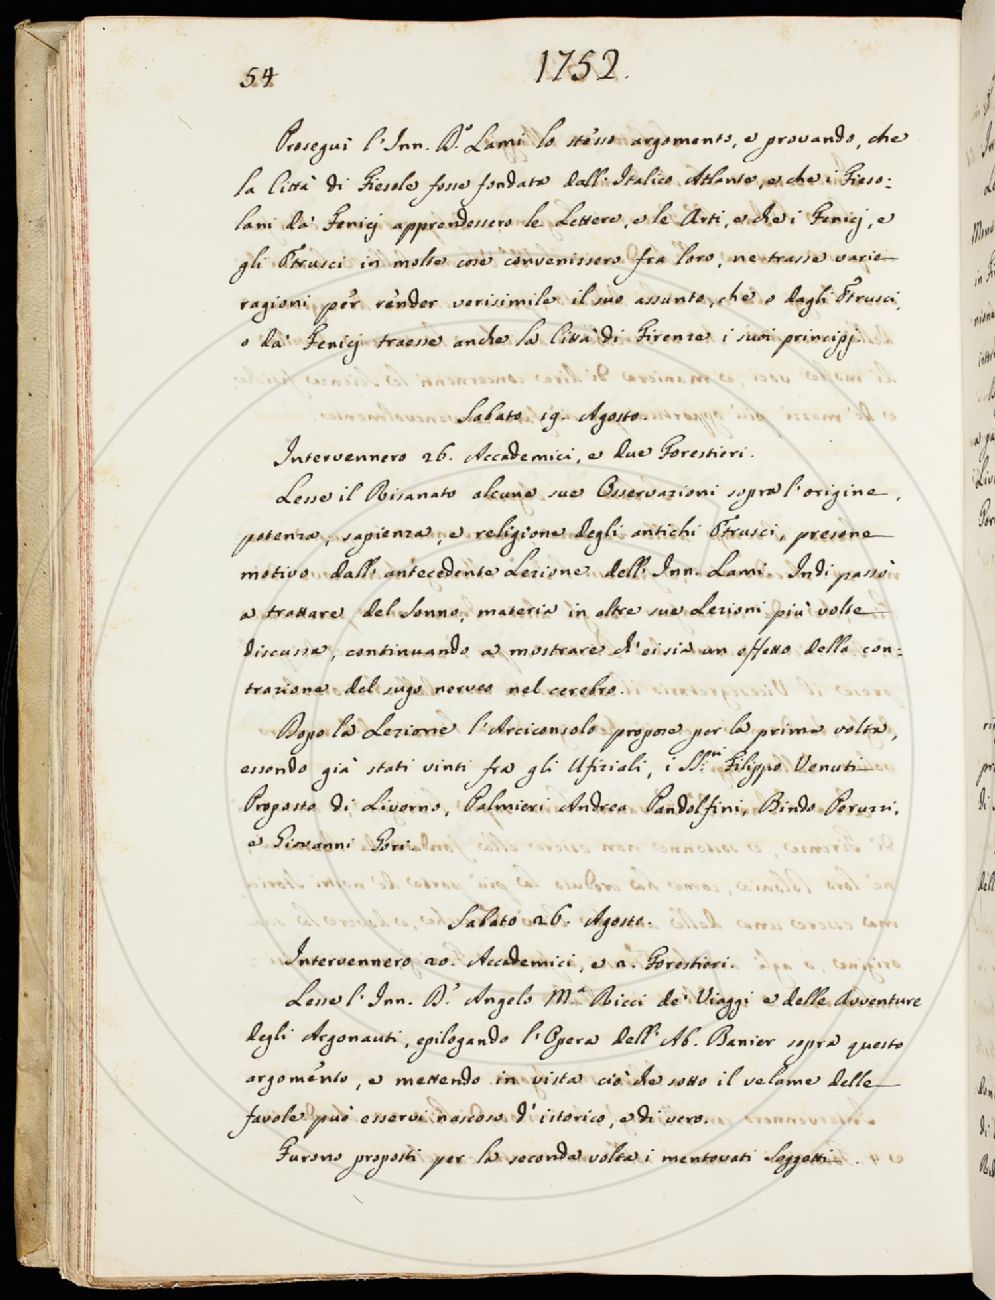 54
1752.
Proseguì l'Inn. D.r Lami lo stesso argomento, e provando, che
la Città di Fiesole fosse fondata dall'Italico Atlante, e che i Fieso=
lani dà Fenicj apprendessero le Lettere, e le Arti, e che i Fenicj, e
gli Etrusci in molte cose convenissero fra loro, ne trasse varie
ragioni per render verisimile il suo assunto, che o dagli Etrusci,
o dà Fenicj traesse anche la Città di Firenze i suoi principj.
Sabato 19. Agosto.
Intervennero 26. Accademici, e due Forestieri.
Lesse il Risanato alcune sue Osservazioni sopra l'origine,
potenza, sapienza, e religione degli antichi Etrusci, presone
motivo dall'antecedente Lezione dell'Inn. Lami. Indi passò
a trattare del Sonno, materia in altre sue Lezioni più volte
discussa, continuando a mostrare ch'ei sia un effetto della con=
trazione del sugo nerveo nel cerebro.
Dopo la Lezione l'Arciconsolo propose per la prima volta,
essendo già stati vinti fra gli Ufiziali, i SS.ri Filippo Venuti
Proposto di Livorno, Palmieri Andrea Pandolfini, Bindo Peruzzi,
e Giovanni Gori.
Sabato 26. Agosto.
Intervennero 20. Accademici, e 2. Forestieri.
Lesse l'Inn. D.r Angelo M.a Ricci de' Viaggi e delle Avventure
degli Argonauti, epilogando l'Opera dell'Ab. Banier sopra questo
argomento, e mettendo in vista ciò che sotto il velame delle
favole può esservi nascoso d'istorico, e di vero.
Furono proposti per la seconda volta i mentovati Soggetti.